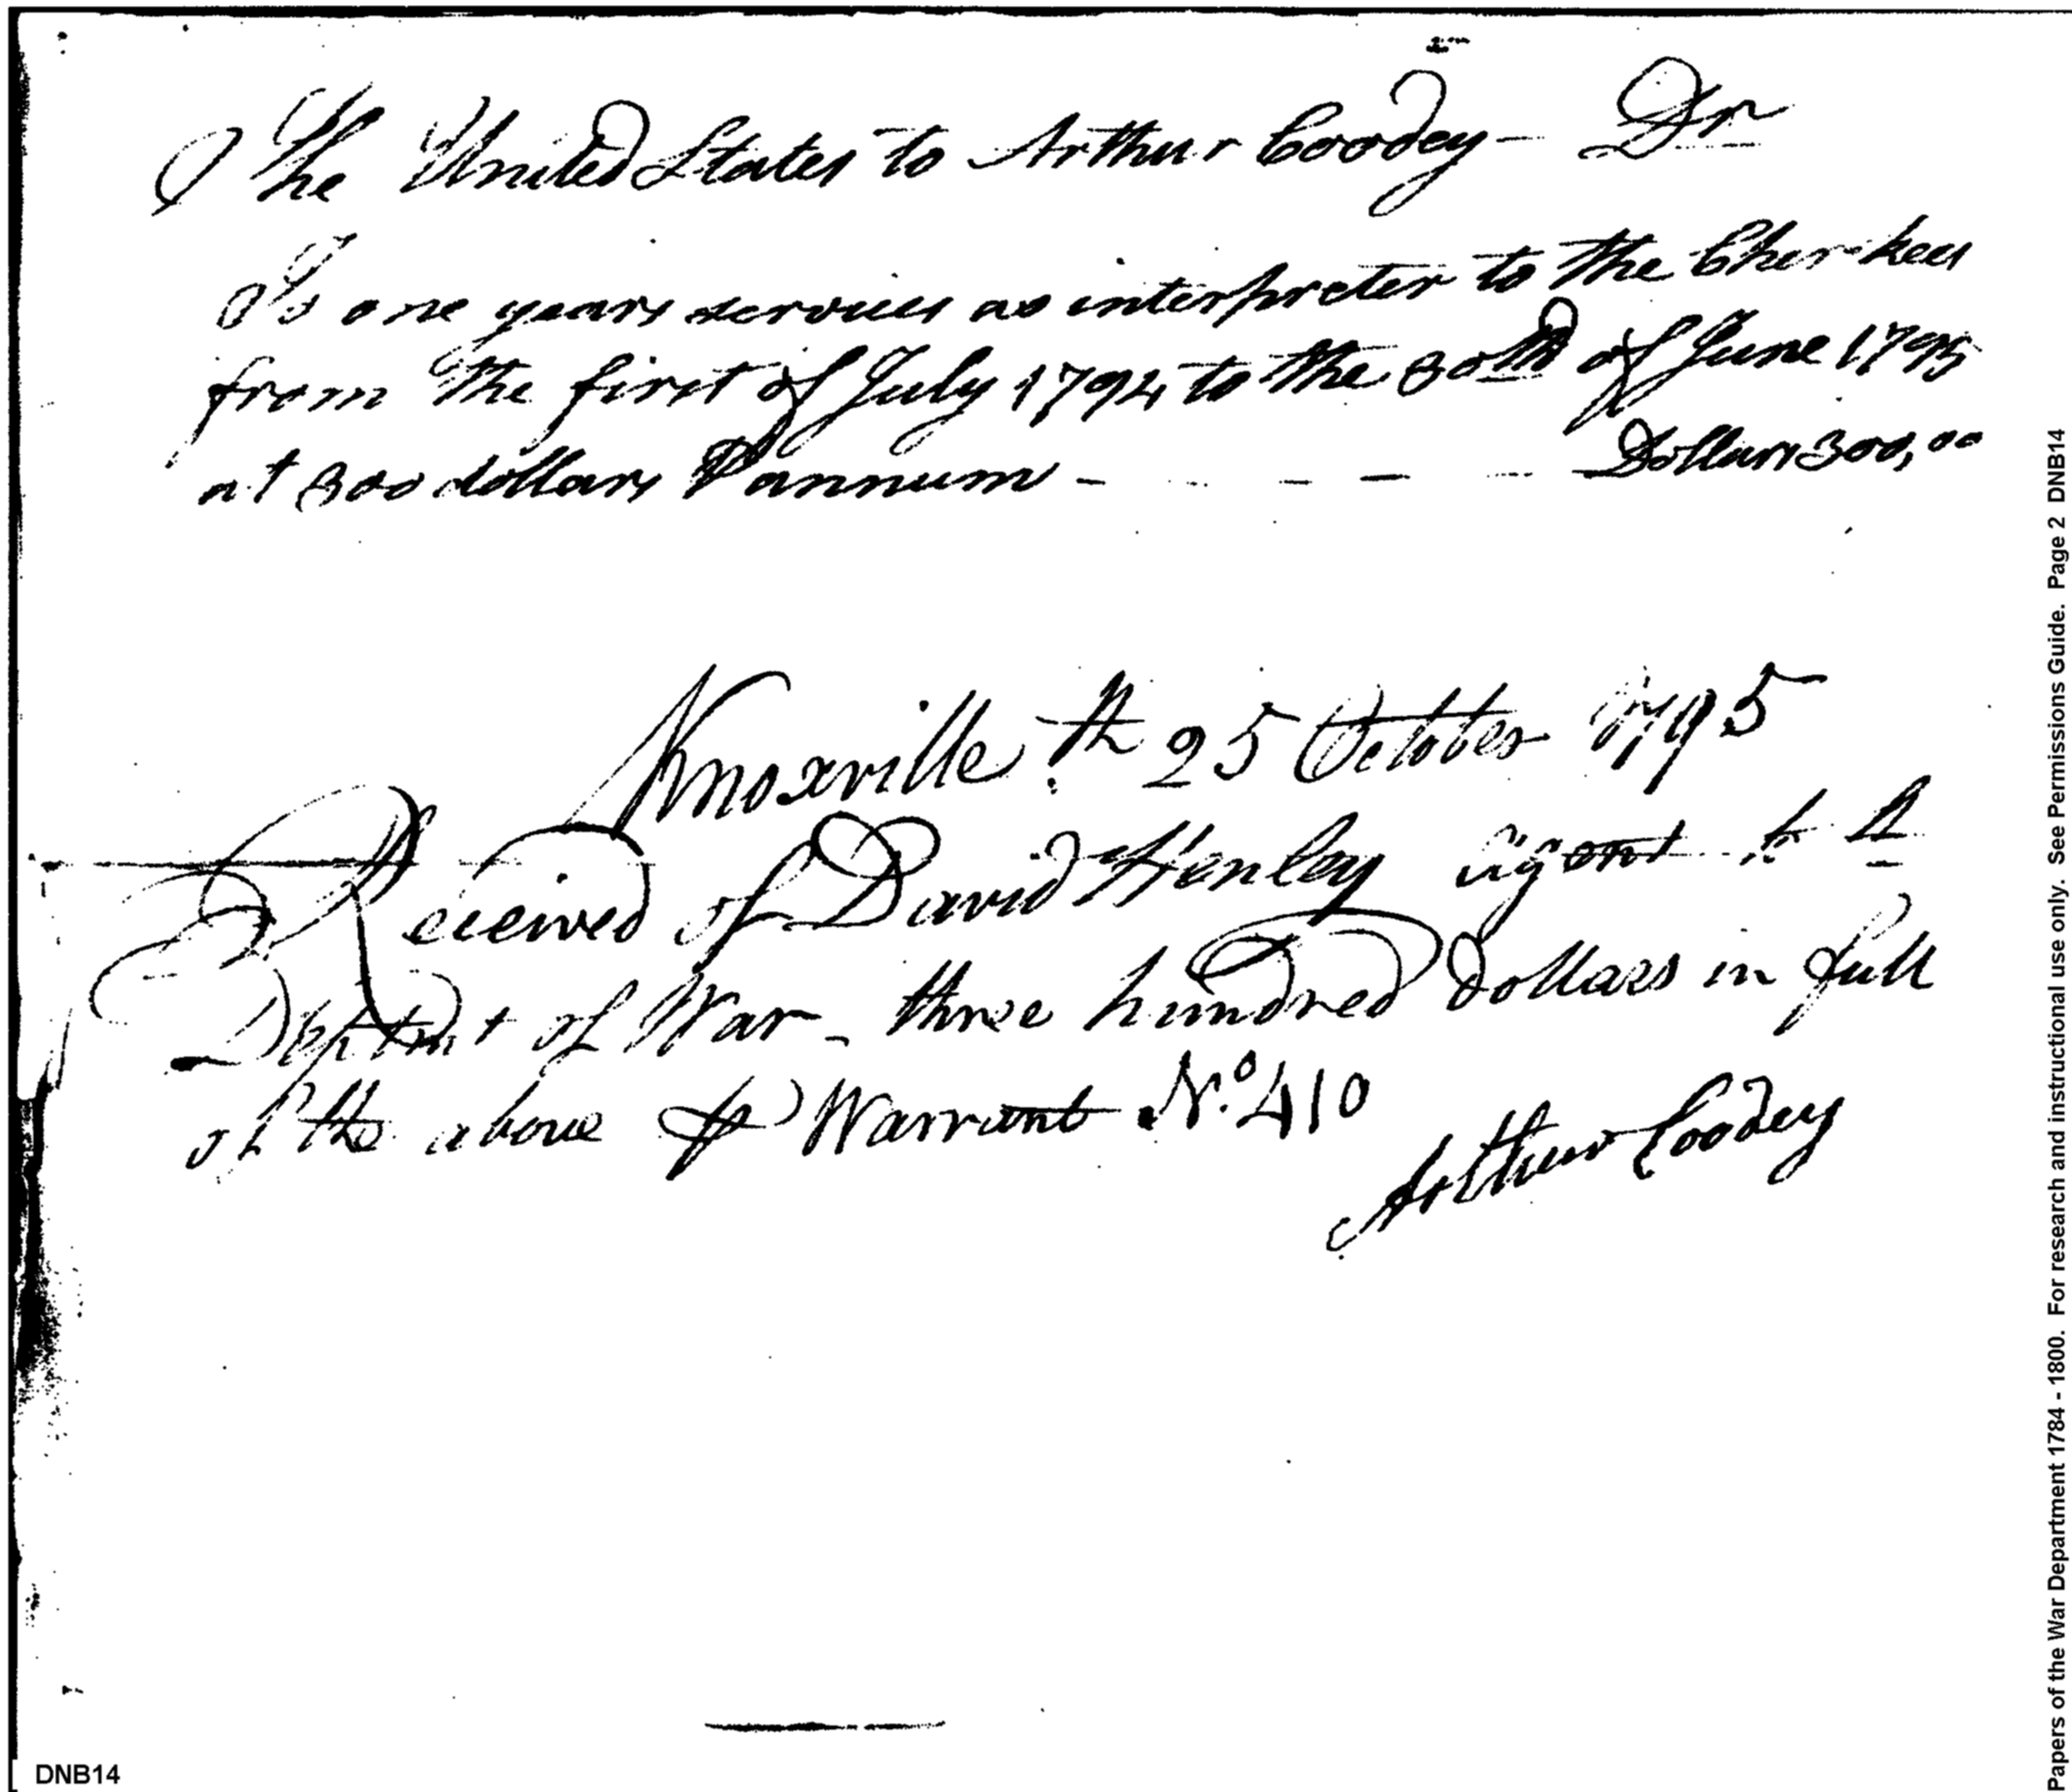 The United States to Arthur Coodey - Dr
To one years services as interpreter to the Cherokees
from the first of July 1794 to the 30th of June 1795
at 300 dollars ⅌ annum - - - - - Dollars 300,00
Knoxville th 25 October 1795
Received of David Henley agent
Departmt of War - three hundred Dollars in full
of the above ⅌ Warrant No. 410
Arthur Coodey
DNB14
Papers of the War Department 1784 - 1800. For research and instructional use only. See Permissions Guide. Page 2 DNB14